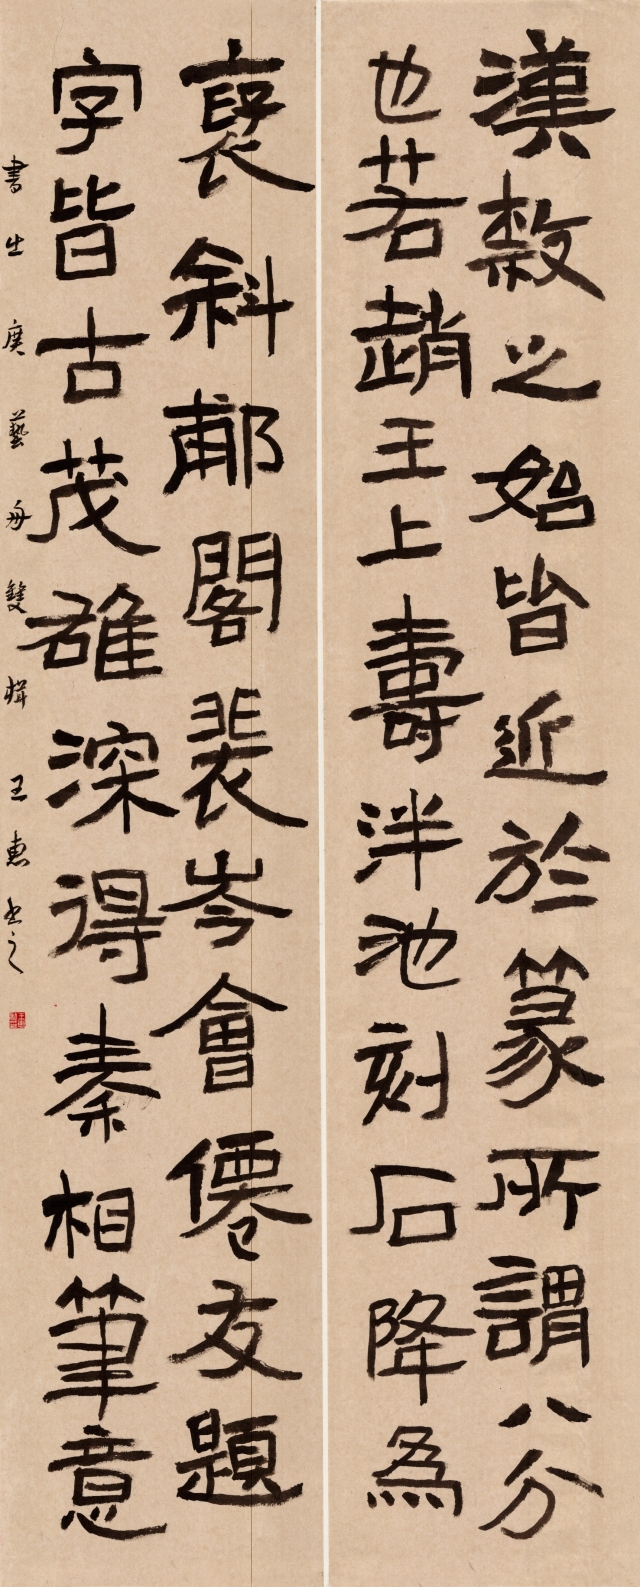 漢隸之始皆近於篆所謂八分
也若趙王上壽泮池刻石降為
褒斜郙閣裴岑會僊友題
字皆古茂雄深得秦相筆意
書出廣藝舟雙楫 王惠书之